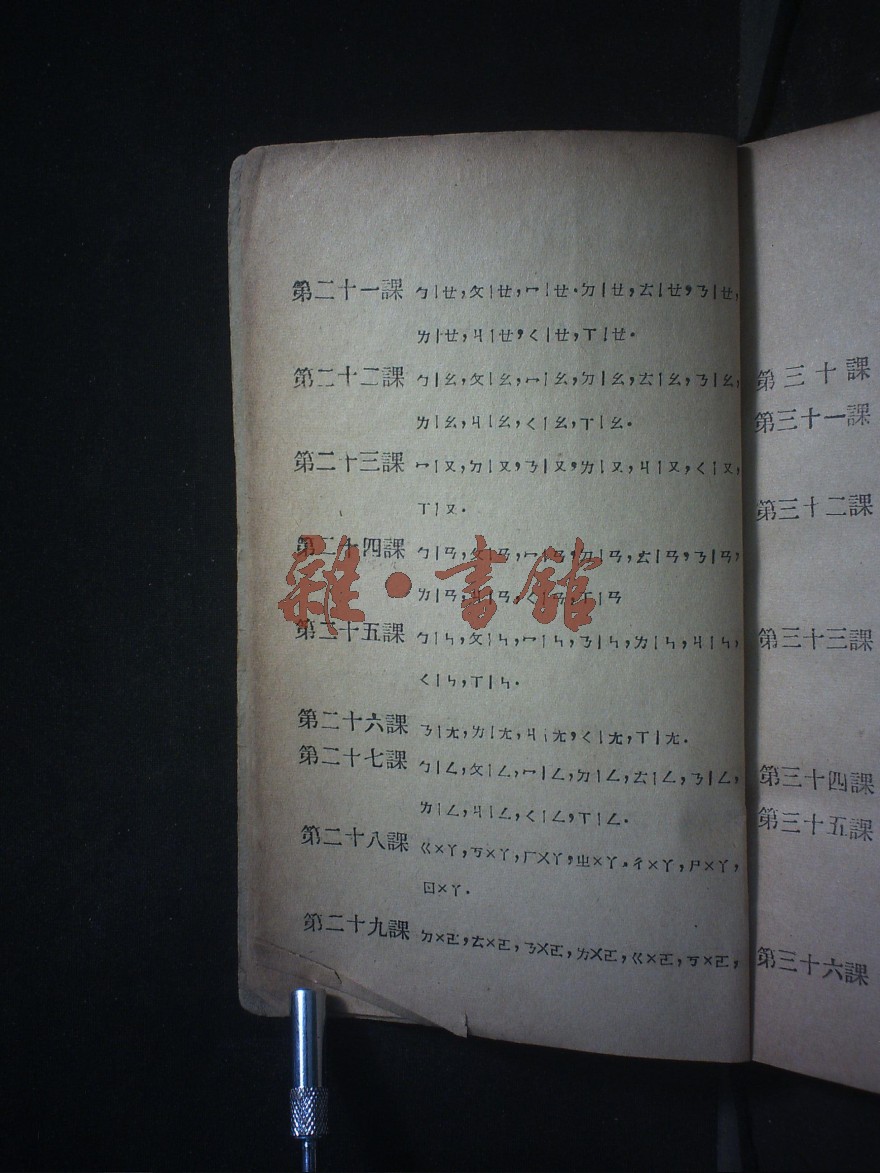 第二十一課 ㄅㄧㄝ,ㄆㄧㄝ,ㄇㄧㄝ.ㄉㄧㄝ,ㄊㄧㄝ,ㄋㄧㄝ,
ㄌㄧㄝ,ㄐㄧㄝ,ㄑㄧㄝ,ㄒㄧㄝ.
第二十二課 ㄅㄧㄠ,ㄆㄧㄠ,ㄇㄧㄠ,ㄉㄧㄠ,ㄊㄧㄠ,ㄋㄧㄠ,
ㄌㄧㄠ,ㄐㄧㄠ,ㄑㄧㄠ,ㄒㄧㄠ.
第二十三課 ㄇㄧㄡ,ㄉㄧㄡ,ㄋㄧㄡ,ㄌㄧㄡ,ㄐㄧㄡ,ㄑㄧㄡ,
ㄒㄧㄡ.
第二十四課 ㄅㄧㄢ,ㄆㄧㄢ,ㄇㄧㄢ,ㄉㄧㄢ,ㄊㄧㄢ,ㄋㄧㄢ,
ㄌㄧㄢ,ㄐㄧㄢ,ㄑㄧㄢ,ㄒㄧㄢ
第二十五課 ㄅㄧㄣ,ㄆㄧㄣ,ㄇㄧㄣ,ㄋㄧㄣ,ㄌㄧㄣ,ㄐㄧㄣ,
ㄑㄧㄣ,ㄒㄧㄣ.
第二十六課 ㄋㄧㄤ,ㄌㄧㄤ,ㄐㄧㄤ,ㄑㄧㄤ,ㄒㄧㄤ.
第二十七課 ㄅㄧㄥ,ㄆㄧㄥ,ㄇㄧㄥ,ㄉㄧㄥ,ㄊㄧㄥ,ㄋㄧㄥ,
ㄌㄧㄥ,ㄐㄧㄥ,ㄑㄧㄥ,ㄒㄧㄥ.
第二十八課 ㄍㄨㄚ,ㄎㄨㄚ,ㄏㄨㄚ,ㄓㄨㄚ.ㄔㄨㄚ,ㄕㄨㄚ,
ㄖㄨㄚ.
第二十九課 ㄉㄨㄛ,ㄊㄨㄛ,ㄋㄨㄛ,ㄌㄨㄛ,ㄍㄨㄛ,ㄎㄨㄛ,
雜·書館
第三十課
第三十一課
第三十二課
第三十三課
第三十四課
第三十五課
第三十六課